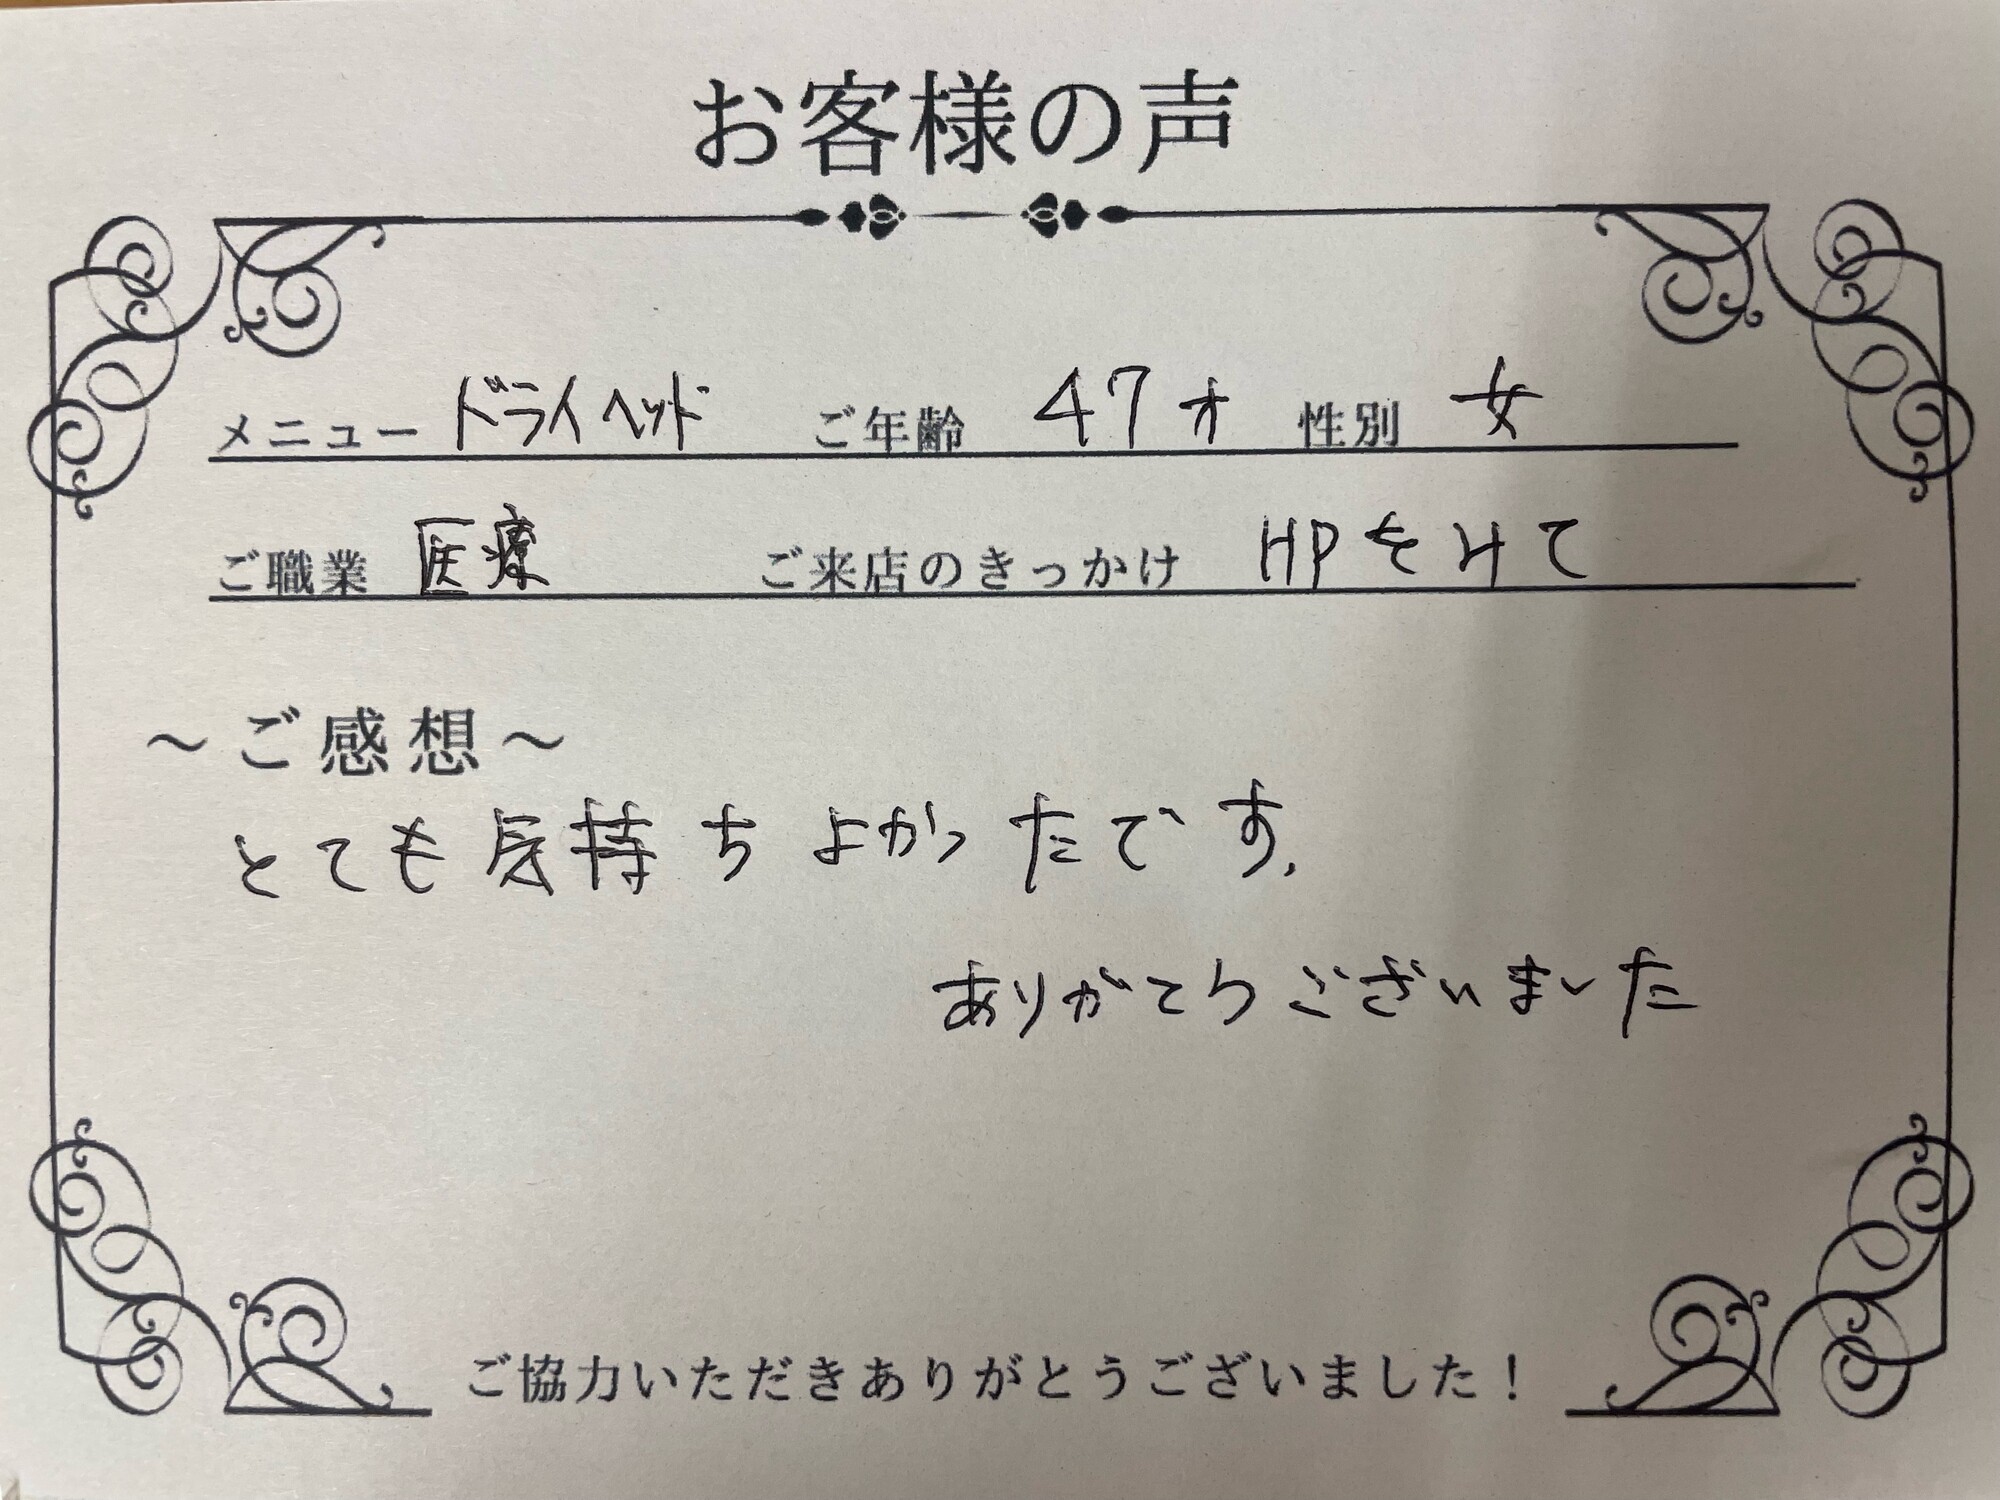 お客様の声
メニュー ドライヘッド ご年齢 47才 性別 女
ご職業 医療 ご来店のきっかけ HPをみて
～ご感想～
とても気持ちよかったです.
ありがとうございました
ご協力いただきありがとうございました！